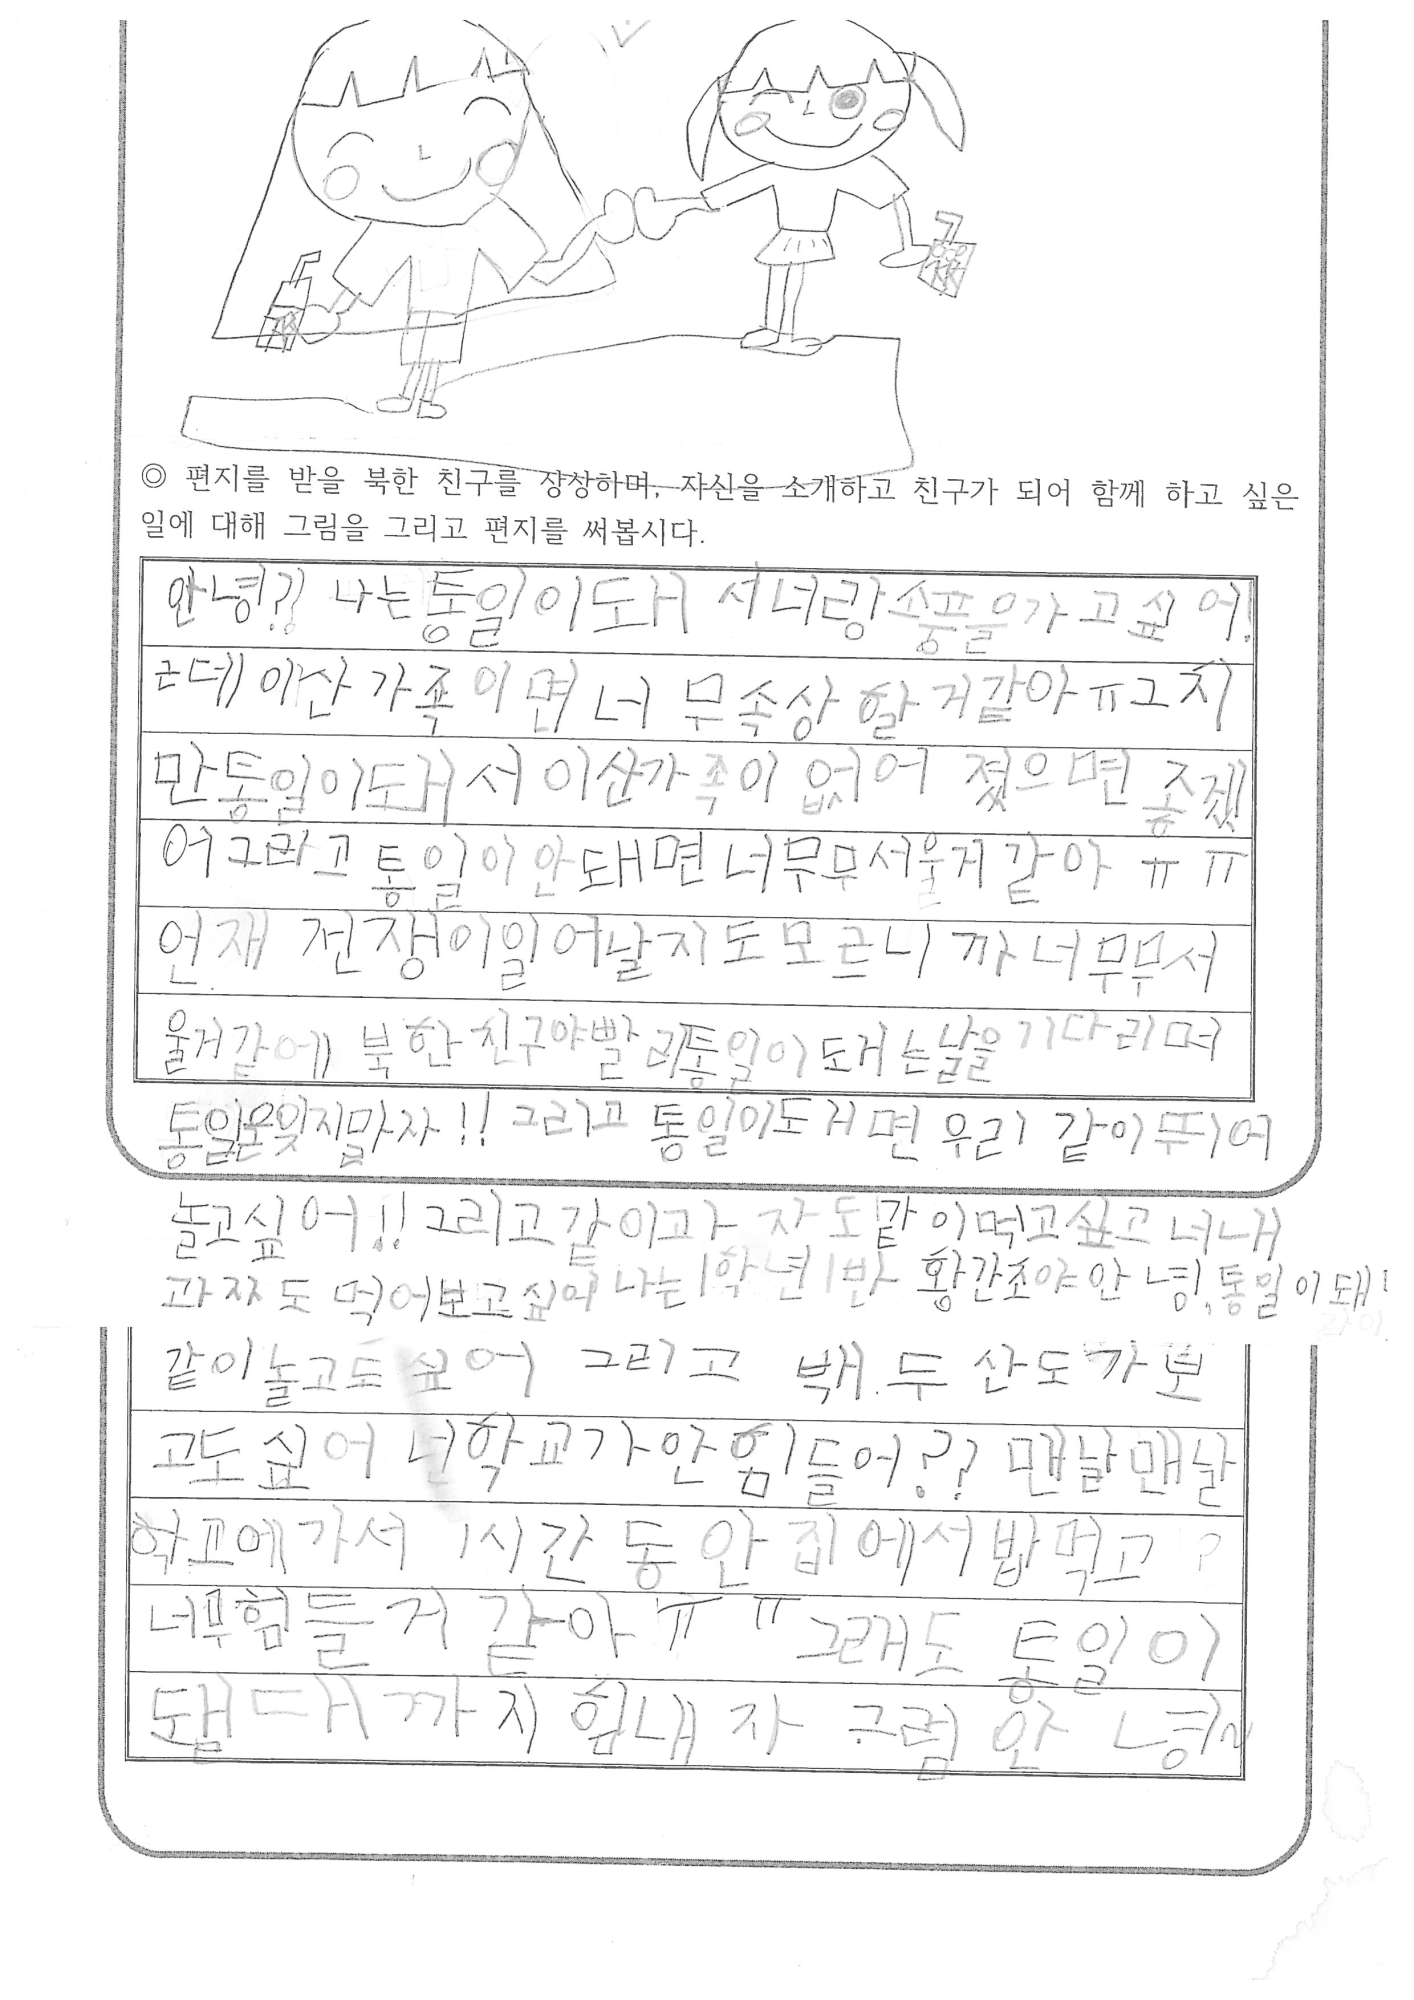 ◎ 편지를 받을 북한 친구를 상상하며, 자신을 소개하고 친구가 되어 함께 하고 싶은
일에 대해 그림을 그리고 편지를 써봅시다.
안녕?? 나는 통일이돼서 너랑 소풍을 가고 싶어!
근데 이산가족이면 너무 속상할거같아ㅠ그치
만 통일이돼서 이산가족이 없어졌으면 좋겠
어 그리고 통일이 안돼면 너무무서울거 같아 ㅠㅠ
언재 전쟁이일어날지도모르니까 너무무서
울거같에 북한친구야 빨리통일이돼는날을 기다리며
통일은잊지말자!! 그리고 통일이돼면 우리 같이뛰어
놀고싶어!! 그리고같이과자도 같이먹고싶고 너내
과짜도 먹어보고싶어 나는1학년1반 황간초야 안녕, 통일이돼!
같이놀고도 싶어 그리고 백두산도가보
고도싶어 넌학교가안힘들어?? 맨날맨날
학교에가서 1시간동안 집에서밥먹고?
너무힘들거 같아ㅠㅠ 그래도 통일이
됄때까지 힘내자 그럼 안녕~